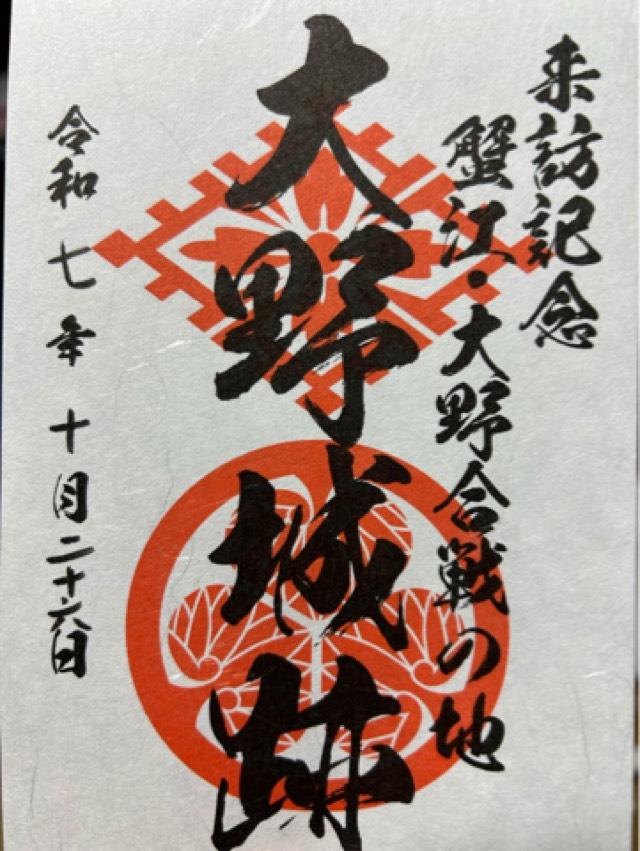 来訪記念
蟹江・大野合戦の地
大野城跡
令和七年十月二十六日